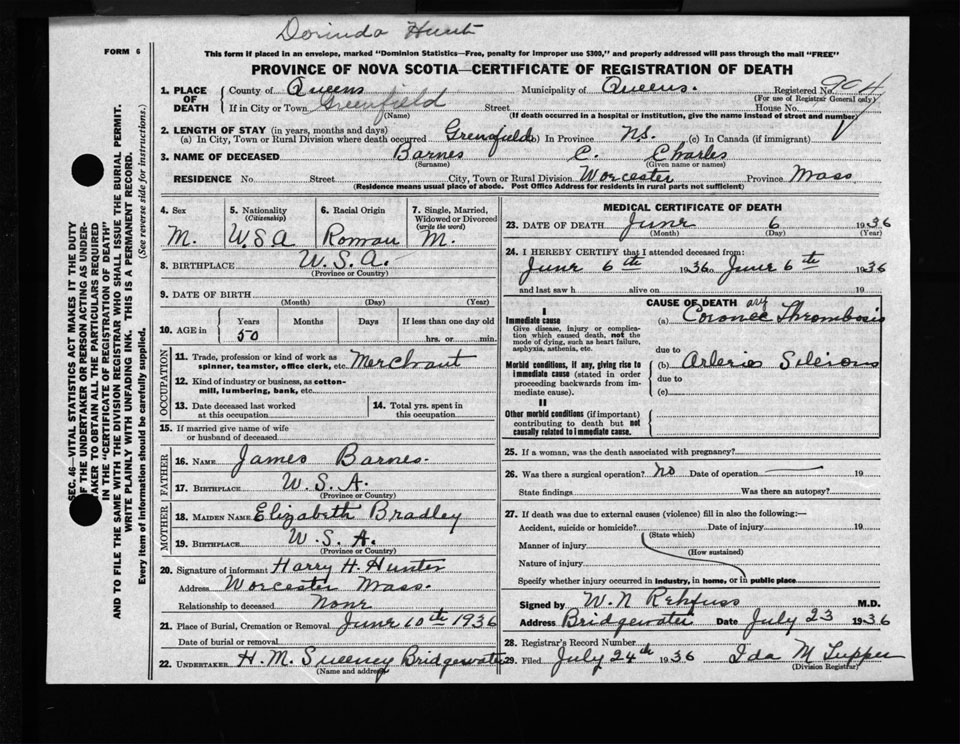 Dorinda Hunt
FORM 6
This form if placed in an envelope, marked "Dominion Statistics—Free, penalty for improper use $300," and properly addressed will pass through the mail "FREE"
PROVINCE OF NOVA SCOTIA—CERTIFICATE OF REGISTRATION OF DEATH
SEC. 46—VITAL STATISTICS ACT MAKES IT THE DUTY
OF THE UNDERTAKER OR PERSON ACTING AS UNDER-
TAKER TO OBTAIN ALL THE PARTICULARS REQUIRED
IN THE "CERTIFICATE OF REGISTRATION OF DEATH"
AND TO FILE THE SAME WITH THE DIVISION REGISTRAR WHO SHALL ISSUE THE BURIAL PERMIT.
WRITE PLAINLY WITH UNFADING INK. THIS IS A PERMANENT RECORD.
Every item of information should be carefully supplied. (See reverse side for instructions.)
1. PLACE OF DEATH County of Queens Municipality of Queens. Registered No. 904
(For use of Registrar General only)
If in City or Town Greenfield Street House No.
(Name) (If death occurred in a hospital or institution, give the name instead of street and number)
2. LENGTH OF STAY (in years, months and days)
(a) In City, Town or Rural Division where death occurred Grenfield (b) In Province N.S. (c) In Canada (if immigrant)
3. NAME OF DECEASED Barnes C. Charles
(Surname) (Given name or names)
RESIDENCE No. Street City, Town or Rural Division Worcester Province Mass
(Residence means usual place of abode. Post Office Address for residents in rural parts not sufficient)
4. Sex M.
5. Nationality (Citizenship) U.S.A
6. Racial Origin Roman
7. Single, Married, Widowed or Divorced (write the word) M.
8. BIRTHPLACE U.S.A.
(Province or Country)
9. DATE OF BIRTH
(Month) (Day) (Year)
10. AGE in Years Months Days If less than one day old
50 hrs. or min.
OCCUPATION
11. Trade, profession or kind of work as spinner, teamster, office clerk, etc. Merchant
12. Kind of industry or business, as cotton-mill, lumbering, bank, etc.
13. Date deceased last worked at this occupation
14. Total yrs. spent in this occupation
15. If married give name of wife or husband of deceased
FATHER
16. NAME James Barnes.
17. BIRTHPLACE U.S.A.
(Province or Country)
MOTHER
18. MAIDEN NAME Elizabeth Bradley
19. BIRTHPLACE U.S.A.
(Province or Country)
20. Signature of informant Harry H. Hunter
Address Worcester Mass.
Relationship to deceased None
21. Place of Burial, Cremation or Removal June 10th 1936
Date of burial or removal
22. UNDERTAKER H. M. Sweeney Bridgewater
(Name and address)
MEDICAL CERTIFICATE OF DEATH
23. DATE OF DEATH June 6 1936
(Month) (Day) (Year)
24. I HEREBY CERTIFY that I attended deceased from:
June 6th 1936 to June 6th 1936
and last saw h alive on 19
CAUSE OF DEATH
I
Immediate cause
Give disease, injury or complication which caused death, not the mode of dying, such as heart failure, asphyxia, asthenia, etc.
(a) Coronee ary Thrombosis
due to
Morbid conditions, if any, giving rise to immediate cause (stated in order proceeding backwards from immediate cause).
(b) Arlerio Silerious
due to
(c)
II
Other morbid conditions (if important) contributing to death but not causally related to immediate cause.
25. If a woman, was the death associated with pregnancy?
26. Was there a surgical operation? No Date of operation — 19
State findings Was there an autopsy?
27. If death was due to external causes (violence) fill in also the following:—
Accident, suicide or homicide? Date of injury 19
(State which)
Manner of injury
(How sustained)
Nature of injury
Specify whether injury occurred in industry, in home, or in public place
Signed by W. N Rehfuss M.D.
Address Bridgewater Date July 23 1936
28. Registrar's Record Number
29. Filed July 24th 1936 Ida M Tupper
(Division Registrar)